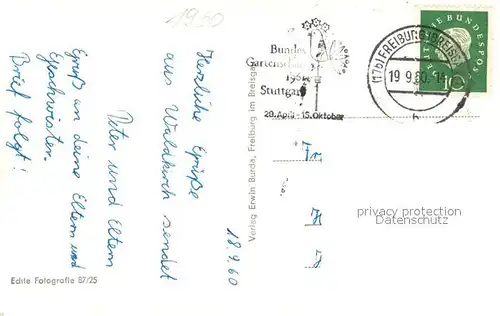 1960
Herzliche Grüße
aus Waldkirch sendet
Peter und Eltern
Gruß an deine Eltern und
Geschwister.
Brief folgt!
18.9.60
Echte Fotografie 87/25
Verlag Erwin Burda, Freiburg im Breisgau
Bundes
Gartenschau
1961
Stuttgart
28. April - 15. Oktober
(17b) FREIBURG (BREISG)
19.9.60
h
DEUTSCHE BUNDESPOST
10
privacy protection
Datenschutz